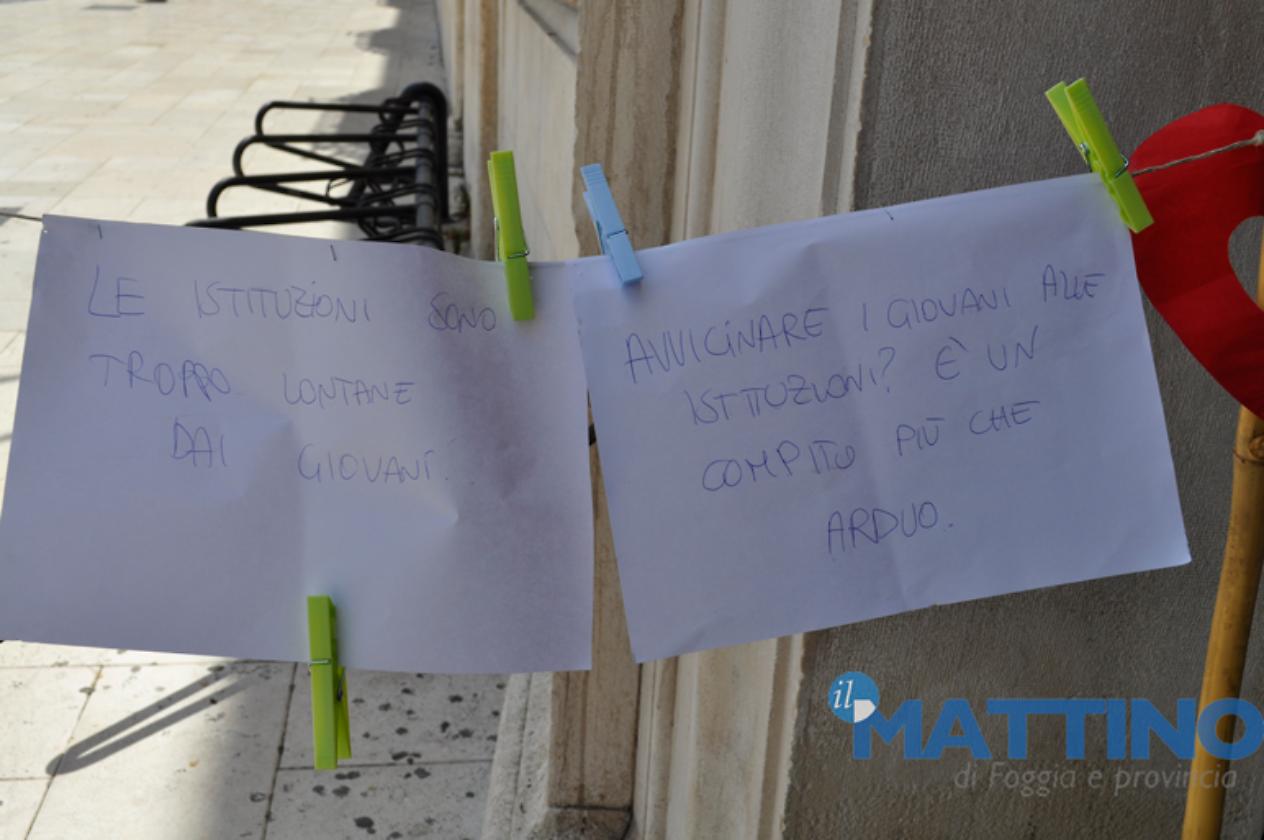 LE ISTITUZIONI SONO
TROPPO LONTANE
DAI GIOVANI.
AVVICINARE I GIOVANI ALLE
ISTITUZIONI? È UN
COMPITO PIÙ CHE
ARDUO.
il
MATTINO
di Foggia e provincia